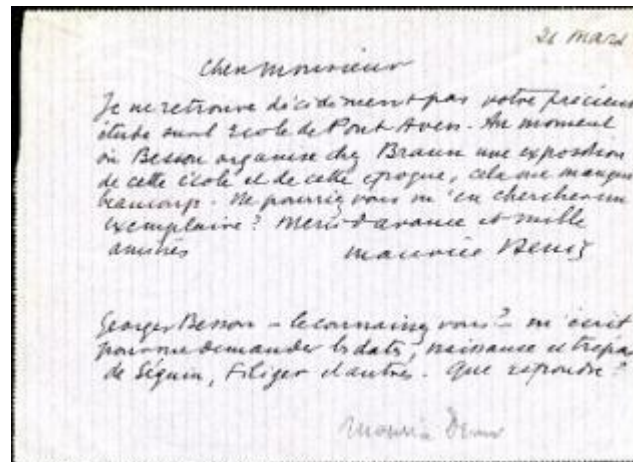 26 mars
cher monsieur
Je ne retrouve décidément pas votre précieuse
étude sur l'Ecole de Pont Aven. Au moment
où Besson organise chez Braun une exposition
de cette école et de cette époque, cela me manque
beaucoup. Ne pourriez vous m'en chercher un
exemplaire? Merci d'avance et mille
amitiés Maurice Denis
Georges Besson - le connaissez vous? - m'écrit
pour me demander les dates, naissance et trépas
de Séguin, Filiger et autres. Que répondre?
Maurice Denis